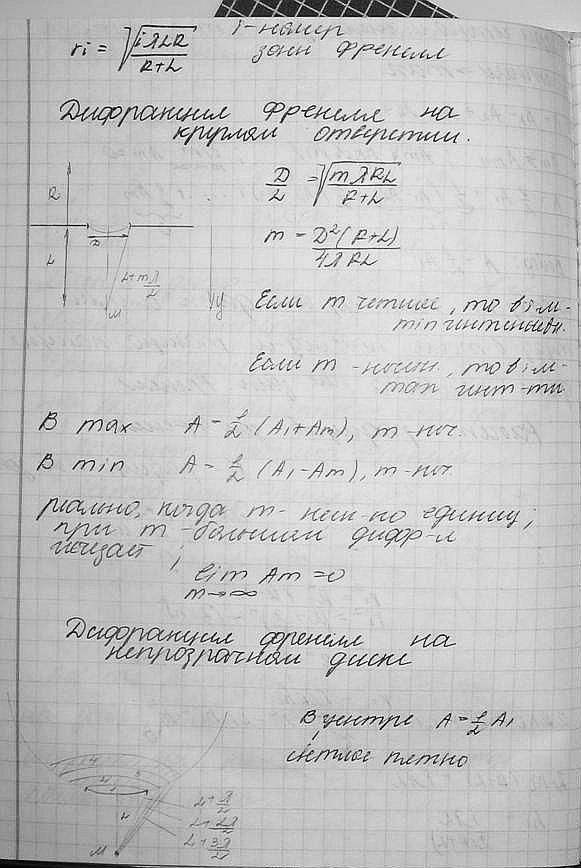 ri = √(iλLR / R+L) i-номер
зоны Френеля
Дифракция Френеля на
круглом отверстии.
D/2 = √(mλRL / R+L)
m = D²(R+L) / 4λRL
R
D
L
L+mλ/2
M
Если m четное, то в т.М-
min интенсивн.
Если m - нечетн., то в т.М-
max инт-ти
В max A = 1/2 (A1+Am), m-неч.
В min A = 1/2 (A1-Am), m-неч
реально, когда m- неск-ко единиц;
при m-большим дифр-я
исчезает;
lim Am = 0
m→∞
Дифракция френеля на
непрозрачном диске
В центре A = 1/2 A1
светлое пятно
L
L+λ/2
L+2λ/2
L+3λ/2
M